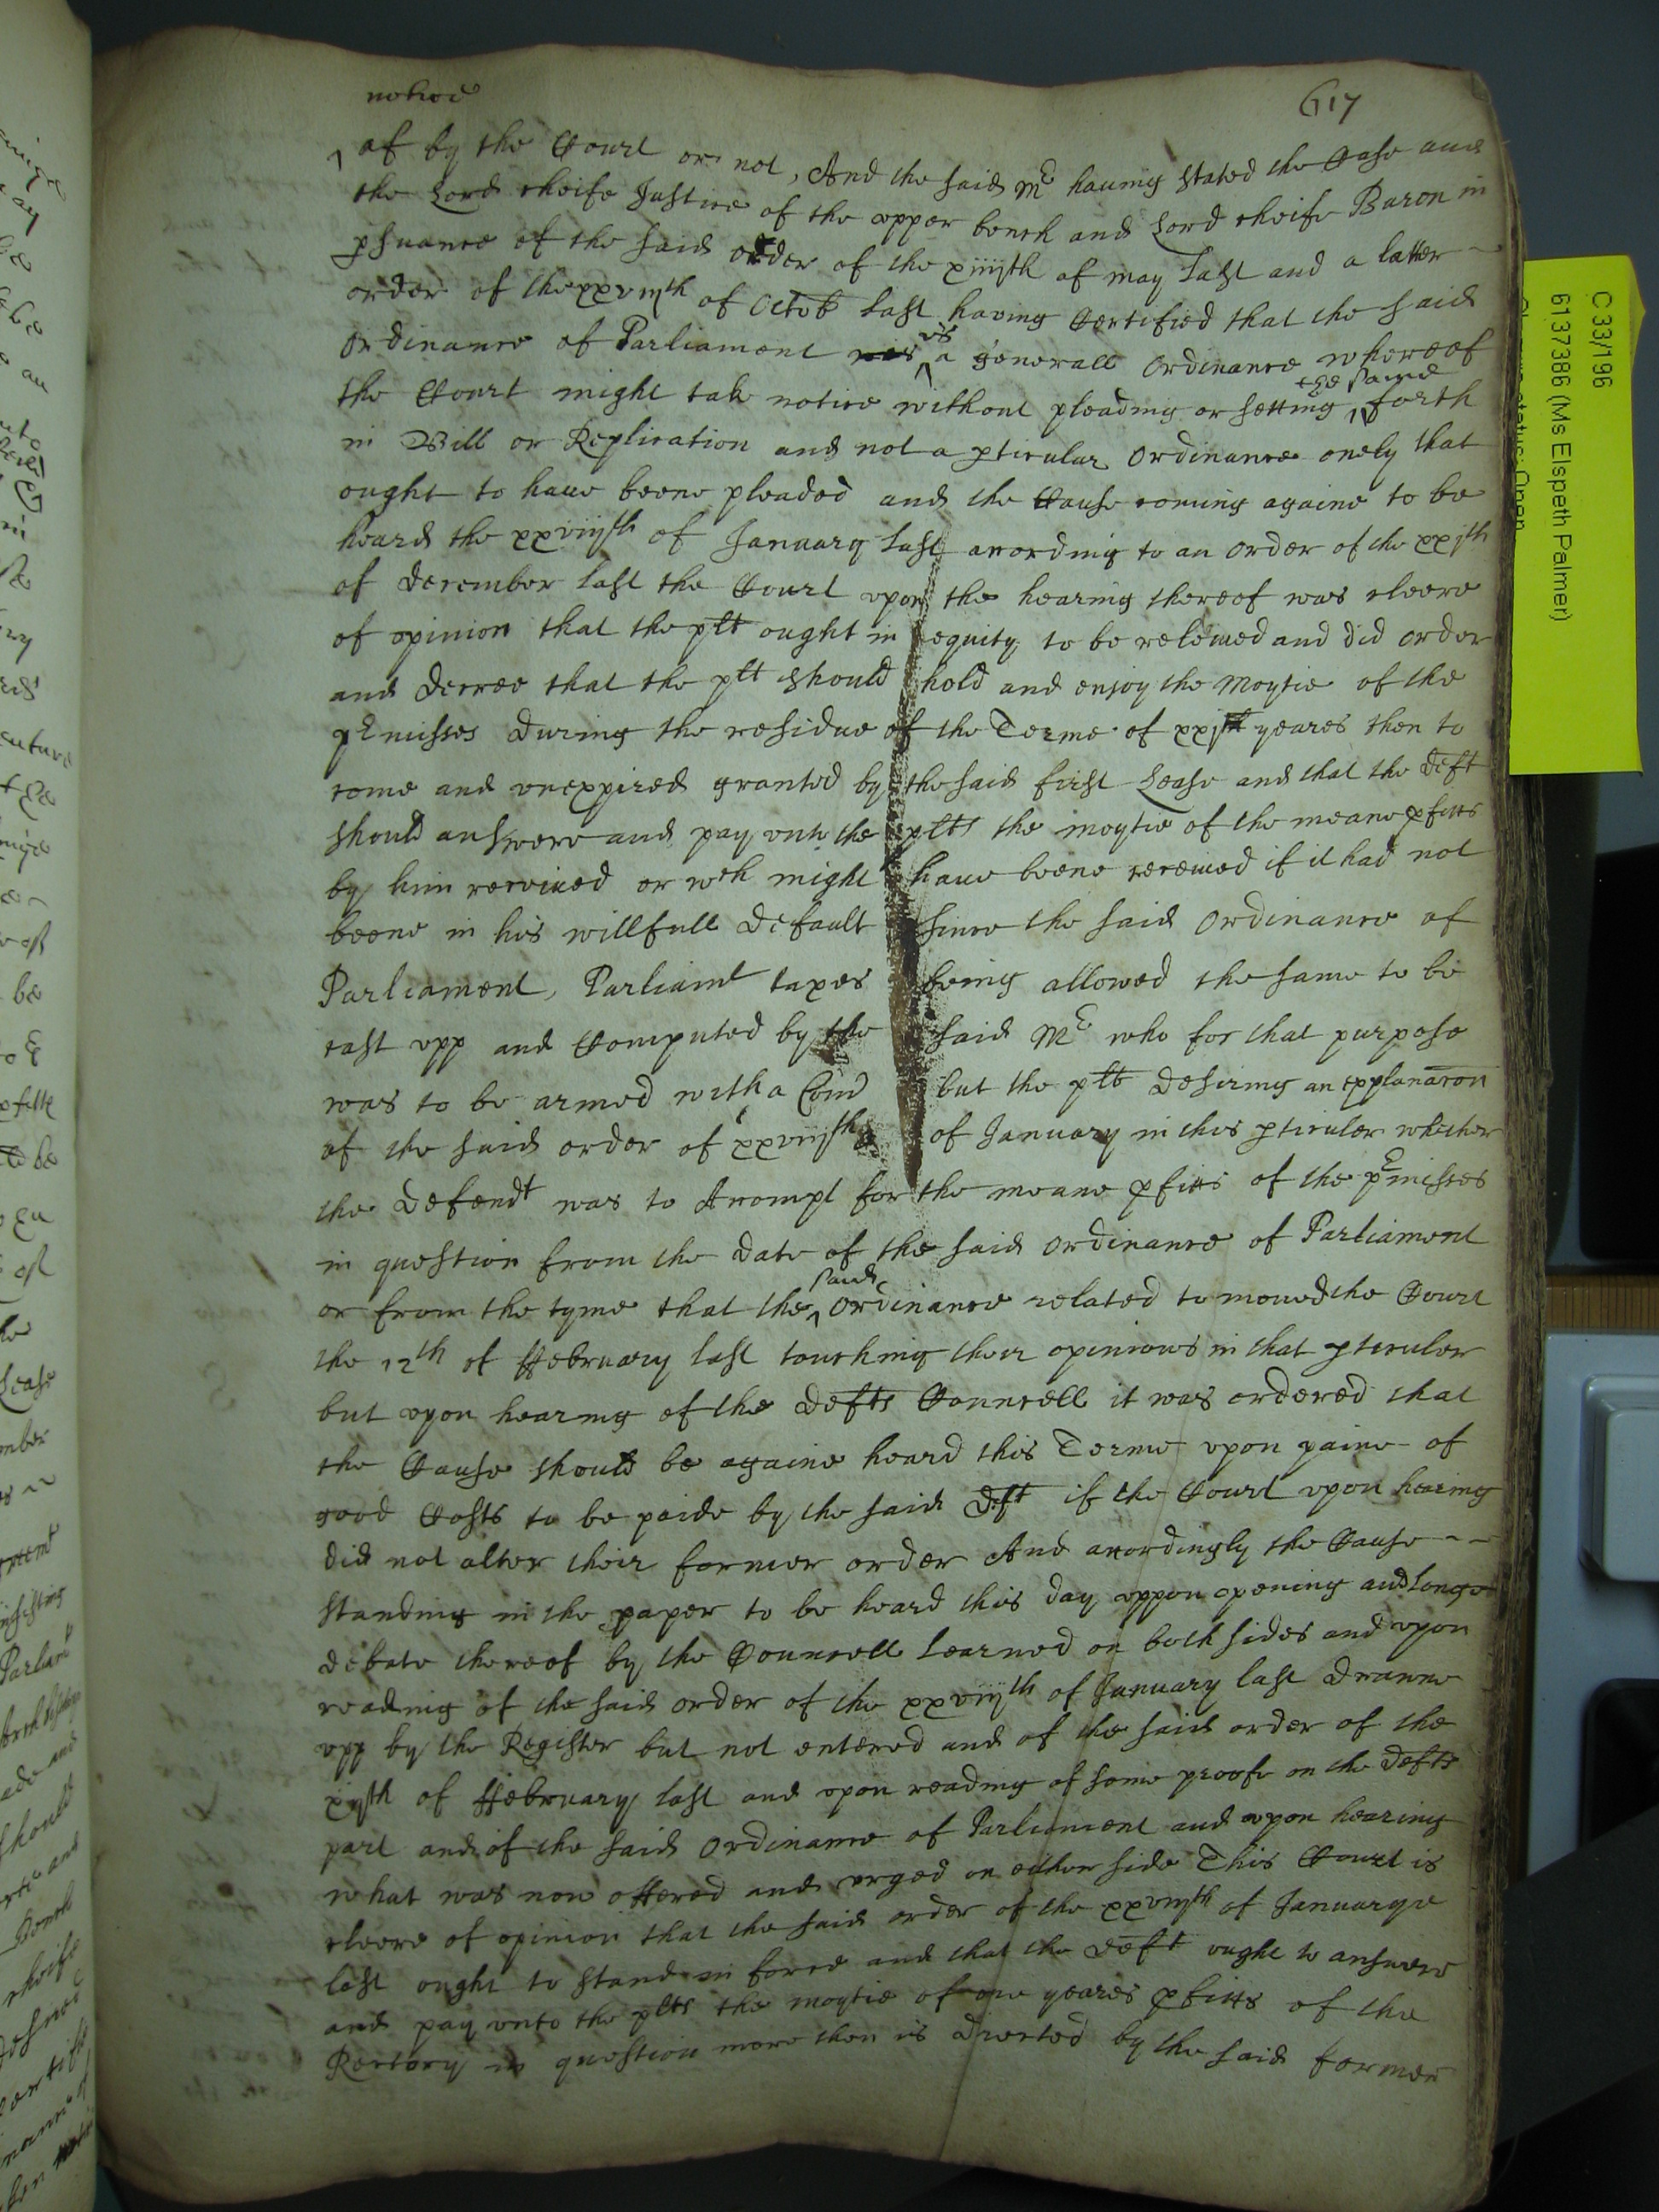 notice
617
of by the Court or not, And the said Mr haueing stated the Case and
the Lord cheife Justice of the vpper bench and Lord cheife Baron in
psuance of the said order of the xiiijth of may last and a latter
order of the xxviijth of Octob last having Certified that the said
Ordinance of Parliament was is a generall Ordinance whereof
the Court might take notice without pleading or setting the same forth
in Bill or Replication and not a pticular Ordinance onely that
ought to haue beene pleaded and the Cause coming againe to be
heard the xxviijth of January last according to an order of the xxjth
of December last the Court vpon the hearing thereof was cleere
of opinion that the plt ought in equity to be releiued and did order
and decree that the plt should hold and enjoy the Moytie of the
pmisses During the residue of the Terme of xxj yeares then to
come and vnexpired granted by the said first Lease and that the Deft
should answere and pay vnto the plts the moytie of the meane pfitts
by him received or wch might haue beene receiued if it had not
beene in his willfull Default since the said Ordinance of
Parliament, Parliamt taxes being allowed the same to be
cast vpp and Computed by the said Mr who for that purpose
was to be armed with a Com but the plt desiring an explanacon
of the said order of xxviijth of January in this pticuler whether
the Defendt was to Accompt for the meane pfitts of the pmisses
in question from the date of the said Ordinance of Parliament
or from the tyme that the said Ordinance related to moued the Court
the 12th of ffebruary last touching their opinions in that pticuler
but vpon hearing of the Defts Councell it was ordered that
the Cause should be againe heard this Terme vpon paine of
good Costs to be paide by the said Deft if the Court vpon hearing
did not alter their former order And accordingly the Cause
standing in the paper to be heard this day vppon opening and longe
debate thereof by the Councell Learned on both sides and vpon
reading of the said order of the xxviijth of January last drawne
vpp by the Register but not entered and of the said order of the
xijth of ffebruary last and vpon reading of some proofe on the Defts
part and of the said Ordinance of Parliament and vpon hearing
what was now offered and vrged on either side This Court is
cleere of opinion that the said order of the xxviijth of Januarye
last ought to stand in force and that the Deft ought to answere
and pay vnto the plts the moytie of one yeares pfitts of the
Rectory in question more then is directed by the said former
C 33/196
6137386 (Ms Elspeth Palmer)